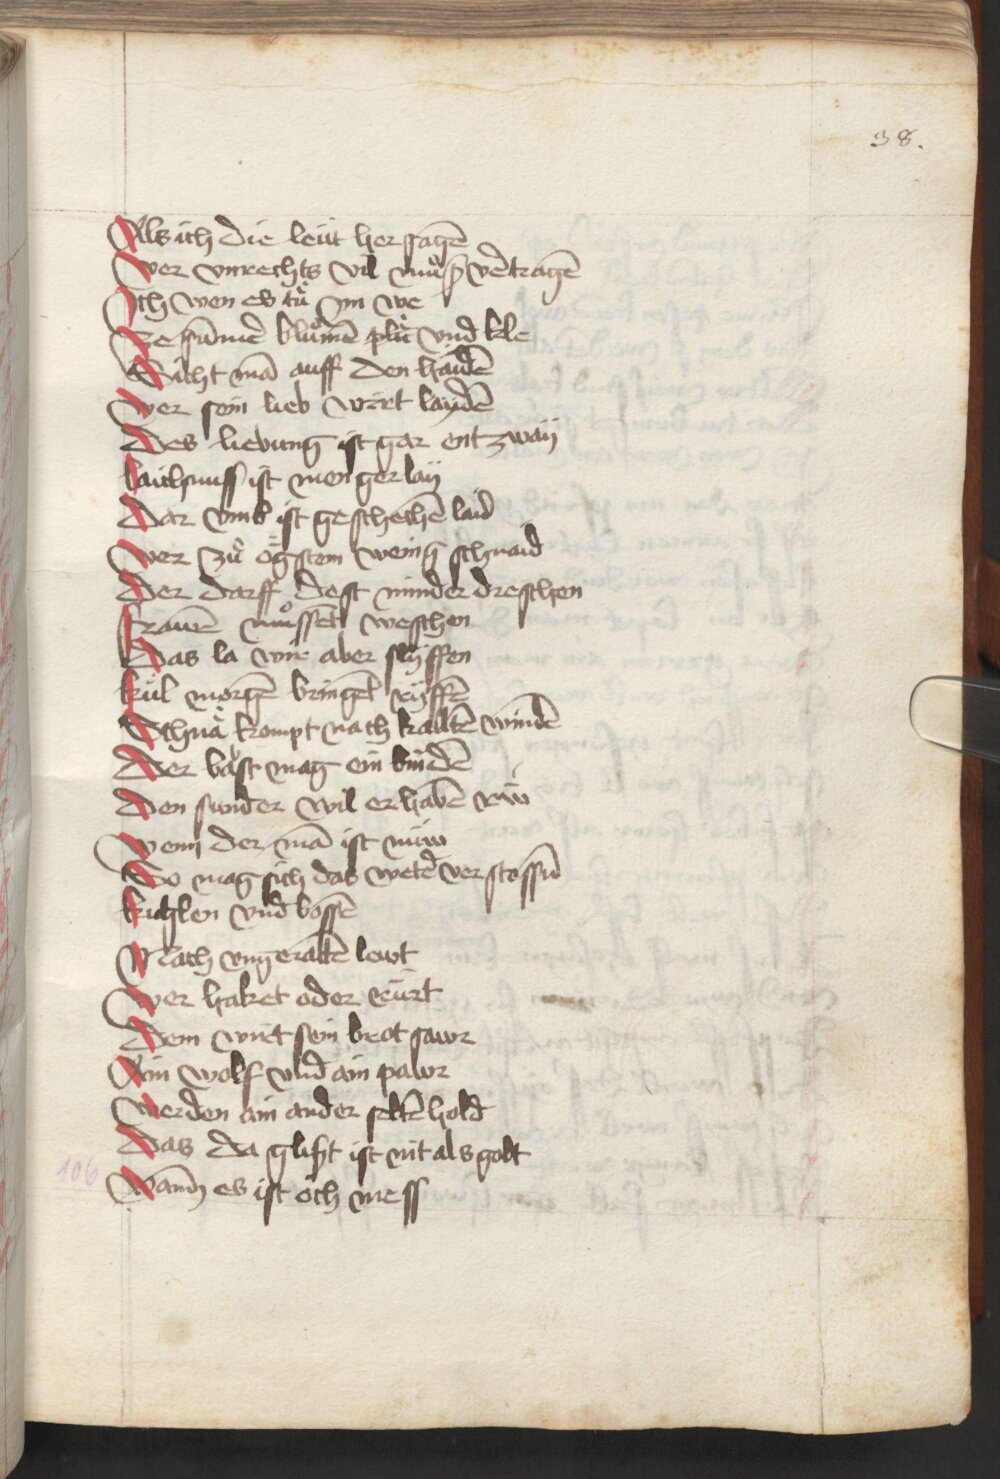 38.
Als ich die leüt her sagē
Wer vnrechts vil muͦß vertragē
Ich wen es tuͤ ym we
Ze sūmē bluͦmē pluͤt vnd kle
Sicht mā auff den hāidē
Wer sein lieb wirt laydē
Des liebung ist gar entzway
laichnuss ist mengerlay
Dar vmb ist geschechē laid
Wer zuͦ ögsten wenig schnaid
Der darff dest minder dreschen
frawē muͦssēt weschen
Das la wir aber slyffen
kül morgē bringēt ryffē
Schnä kompt nach kaltē windē
Der vast mag ein bindē
Den sunder wil er habē rüw
Wenn der mā ist nüw
So mag sich das wetter verstossñ
kuglen vnd bossē
Nach vngeratē lewt
Wer haket oder rürt
Dem wirt sein brot sawr
Ain wolf vnd ain pawr
Werden ain ander seltē hold
Das da glist ist nit als gold
Wann es ist och mess
106